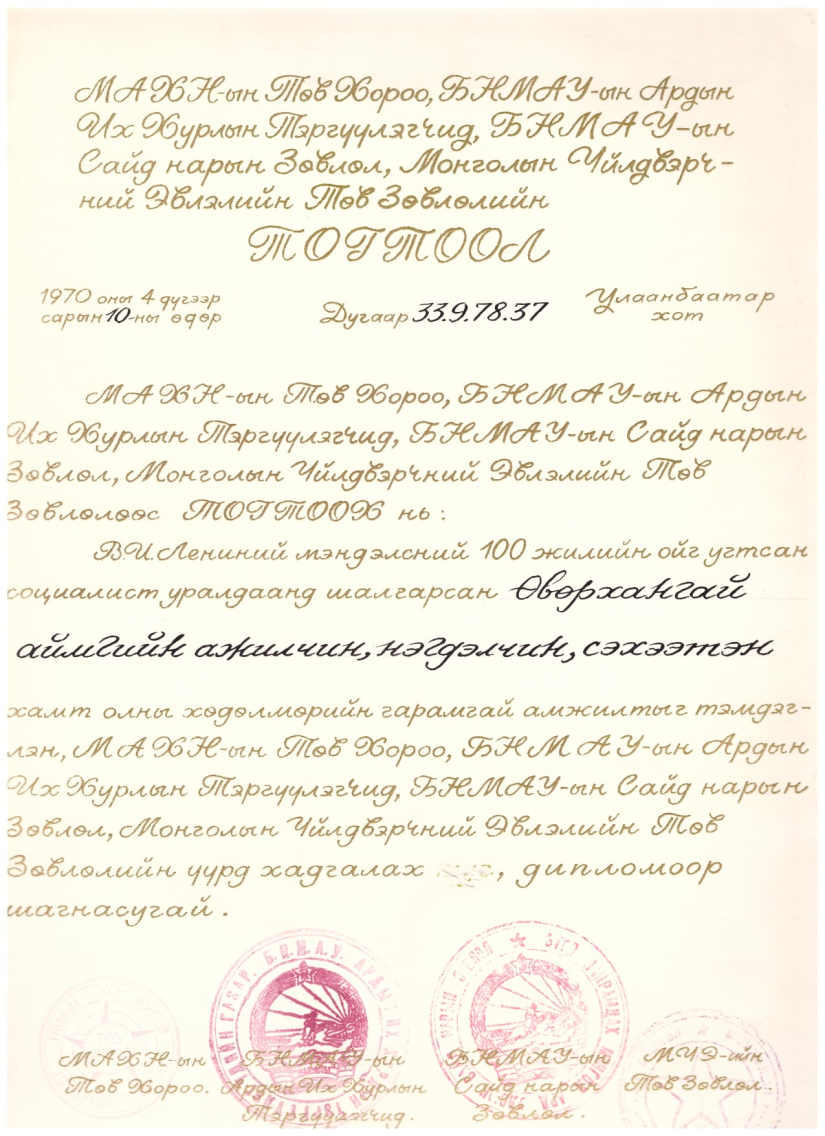 МАХН-ын Төв Хороо, БНМАУ-ын Ардын
Их Хурлын Тэргүүлэгчид, БНМАУ-ын
Сайд нарын Зөвлөл, Монголын Үйлдвэрч-
ний Эвлэлийн Төв Зөвлөлийн
ТОГТООЛ
1970 оны 4 дүгээр
сарын 10-ны өдөр
Дугаар 33.9.78.37
Улаанбаатар
хот
МАХН-ын Төв Хороо, БНМАУ-ын Ардын
Их Хурлын Тэргүүлэгчид, БНМАУ-ын Сайд нарын
Зөвлөл, Монголын Үйлдвэрчний Эвлэлийн Төв
Зөвлөлөөс ТОГТООХ нь:
В.И.Лениний мэндэлсний 100 жилийн ойг угтсан
социалист уралдаанд шалгарсан Өвөрхангай
аймгийн ажилчин, нэгдэлчин, сэхээтэн
хамт олны хөдөлмөрийн гарамгай амжилтыг тэмдэг-
лэн, МАХН-ын Төв Хороо, БНМАУ-ын Ардын
Их Хурлын Тэргүүлэгчид, БНМАУ-ын Сайд нарын
Зөвлөл, Монголын Үйлдвэрчний Эвлэлийн Төв
Зөвлөлийн үүрд хадгалах , дипломоор
шагнасугай.
МАХН-ын
Төв Хороо.
БНМАУ-ын
Ардын Их Хурлын
Тэргүүлэгчид.
БНМАУ-ын
Сайд нарын
Зөвлөл.
МҮЭ-ийн
Төв Зөвлөл.